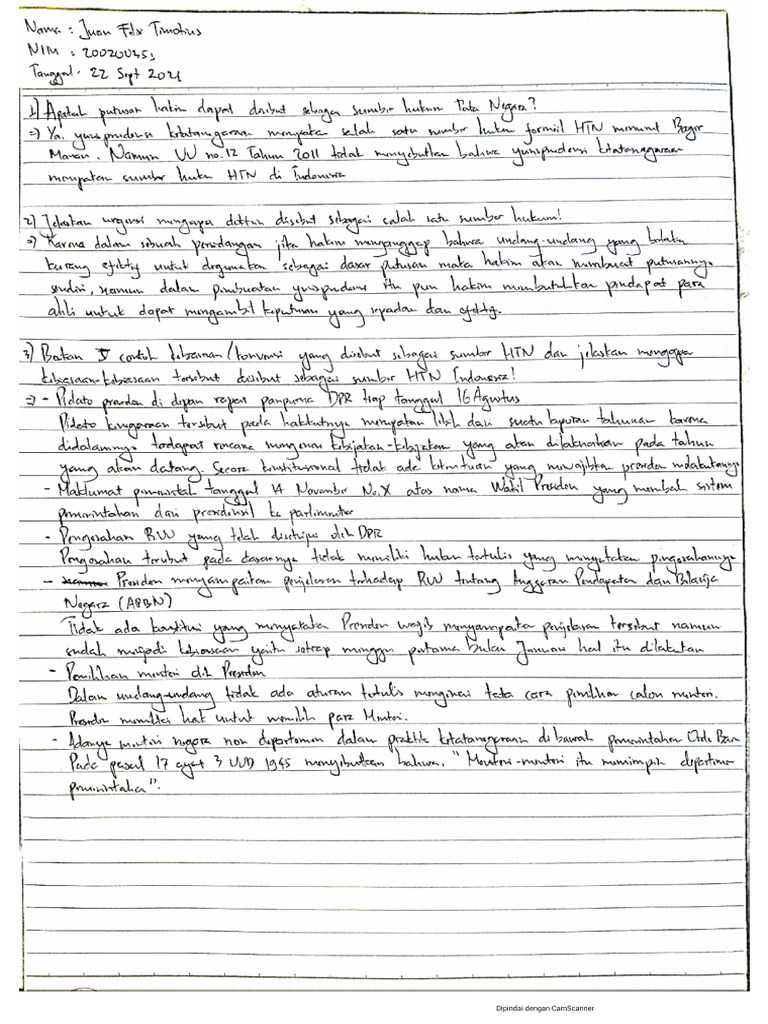 Nama : Juan Felix Timotius
NIM : 200200451
Tanggal : 22 Sept 2021
1) Apakah putusan hakim dapat disebut sebagai sumber hukum Tata Negara?
=) Ya, yurisprudensi ketatanegaraan merupakan salah satu sumber hukum formil HTN menurut Bagir
Manan. Namun UU no.12 Tahun 2011 tidak menyebutkan bahwa yurisprudensi ketatanegaraan
merupakan sumber hukum HTN di Indonesia
2) Jelaskan urgensi mengapa doktrin disebut sebagai salah satu sumber hukum!
=) Karena dalam sebuah persidangan jika hakim menganggap bahwa undang-undang yang berlaku
kurang efektif untuk digunakan sebagai dasar putusan maka hakim akan membuat putusannya
sendiri, namun dalam pembuatan yurisprudensi itu pun hakim membutuhkan pendapat para
ahli untuk dapat mengambil keputusan yang sepadan dan efektif.
3) Berikan 5 contoh kebiasaan/konvensi yang disebut sebagai sumber HTN dan jelaskan mengapa
kebiasaan-kebiasaan tersebut disebut sebagai sumber HTN Indonesia!
=) - Pidato presiden di depan rapat paripurna DPR tiap tanggal 16 Agustus
Pidato kenegaraan tersebut pada hakikatnya merupakan lebih dari suatu laporan tahunan karena
didalamnya terdapat rencana mengenai kebijakan-kebijakan yang akan dilaksanakan pada tahun
yang akan datang. Secara konstitusional tidak ada ketentuan yang mewajibkan presiden melakukannya
- Maklumat pemerintah tanggal 14 November No.X atas nama Wakil Presiden yang merubah sistem
pemerintahan dari presidensil ke parlimenter
- Pengesahan RUU yang telah disetujui oleh DPR
Pengesahan tersebut pada dasarnya tidak memiliki hukum tertulis yang mengatakan pengesahannya
- Presiden menyampaikan penjelasan terhadap RUU tentang Anggaran Pendapatan dan Belanja
Negara (APBN)
Tidak ada konstitusi yang menyatakan Presiden wajib menyampaikan penjelasan tersebut namun
sudah menjadi kebiasaan yaitu setiap minggu pertama bulan Januari hal itu dilakukan
- Pemilihan menteri oleh Presiden
Dalam undang-undang tidak ada aturan tertulis mengenai tata cara pemilihan calon menteri.
Presiden memiliki hak untuk memilih para Menteri.
- Adanya menteri negara non departemen dalam praktik ketatanegaraan di bawah pemerintahan Orde Baru
Pada pasal 17 ayat 3 UUD 1945 menyebutkan bahwa. "Menteri-menteri itu memimpin departemen
pemerintahan".
Dipindai dengan CamScanner